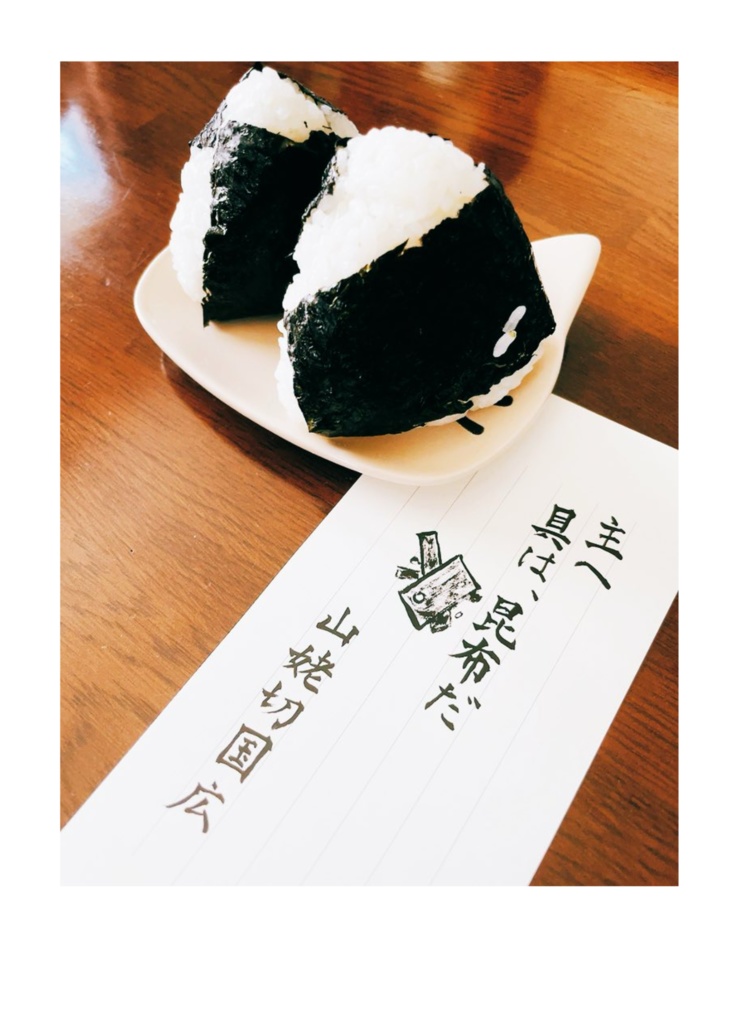 主へ
具は、昆布だ
山姥切国広